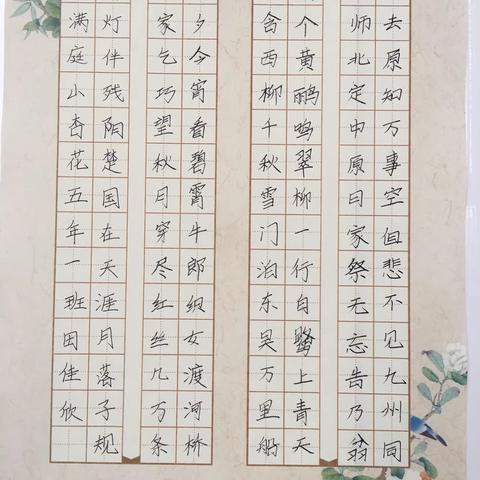 去原知万事空但悲不见九州同
师北定中原日家祭无忘告乃翁
个黄鹂鸣翠柳一行白鹭上青天
含西柳千秋雪门泊东吴万里船
夕今宵看碧霄牛郎织女渡河桥
家乞巧望秋月穿尽红丝几万条
灯伴残阳楚国在天涯月落子规
满庭小杏花五年一班田佳欣